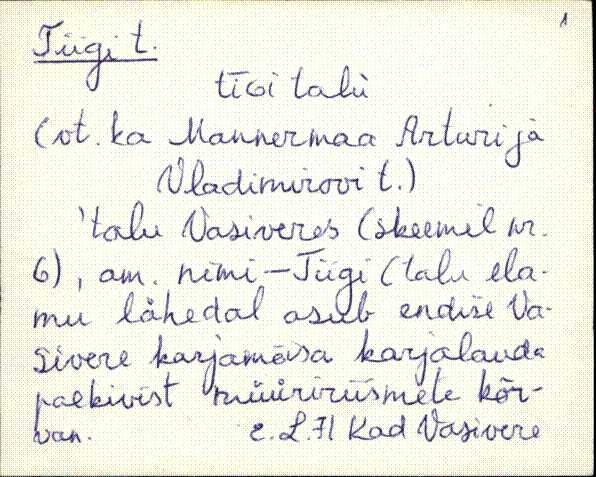 1
Tiigi t.
tīGi talù
(vt. ka Mannermaa Arturi ja
Vladimirovi t.)
'talu Vasiveres (skeemil nr.
6), am. nimi – Tiigi (talu ela-
mu lähedal asub endise Va-
sivere karjamõisa karjalauda
paekivist müüririismete kõr-
val. L. 71 Kad Vasivere